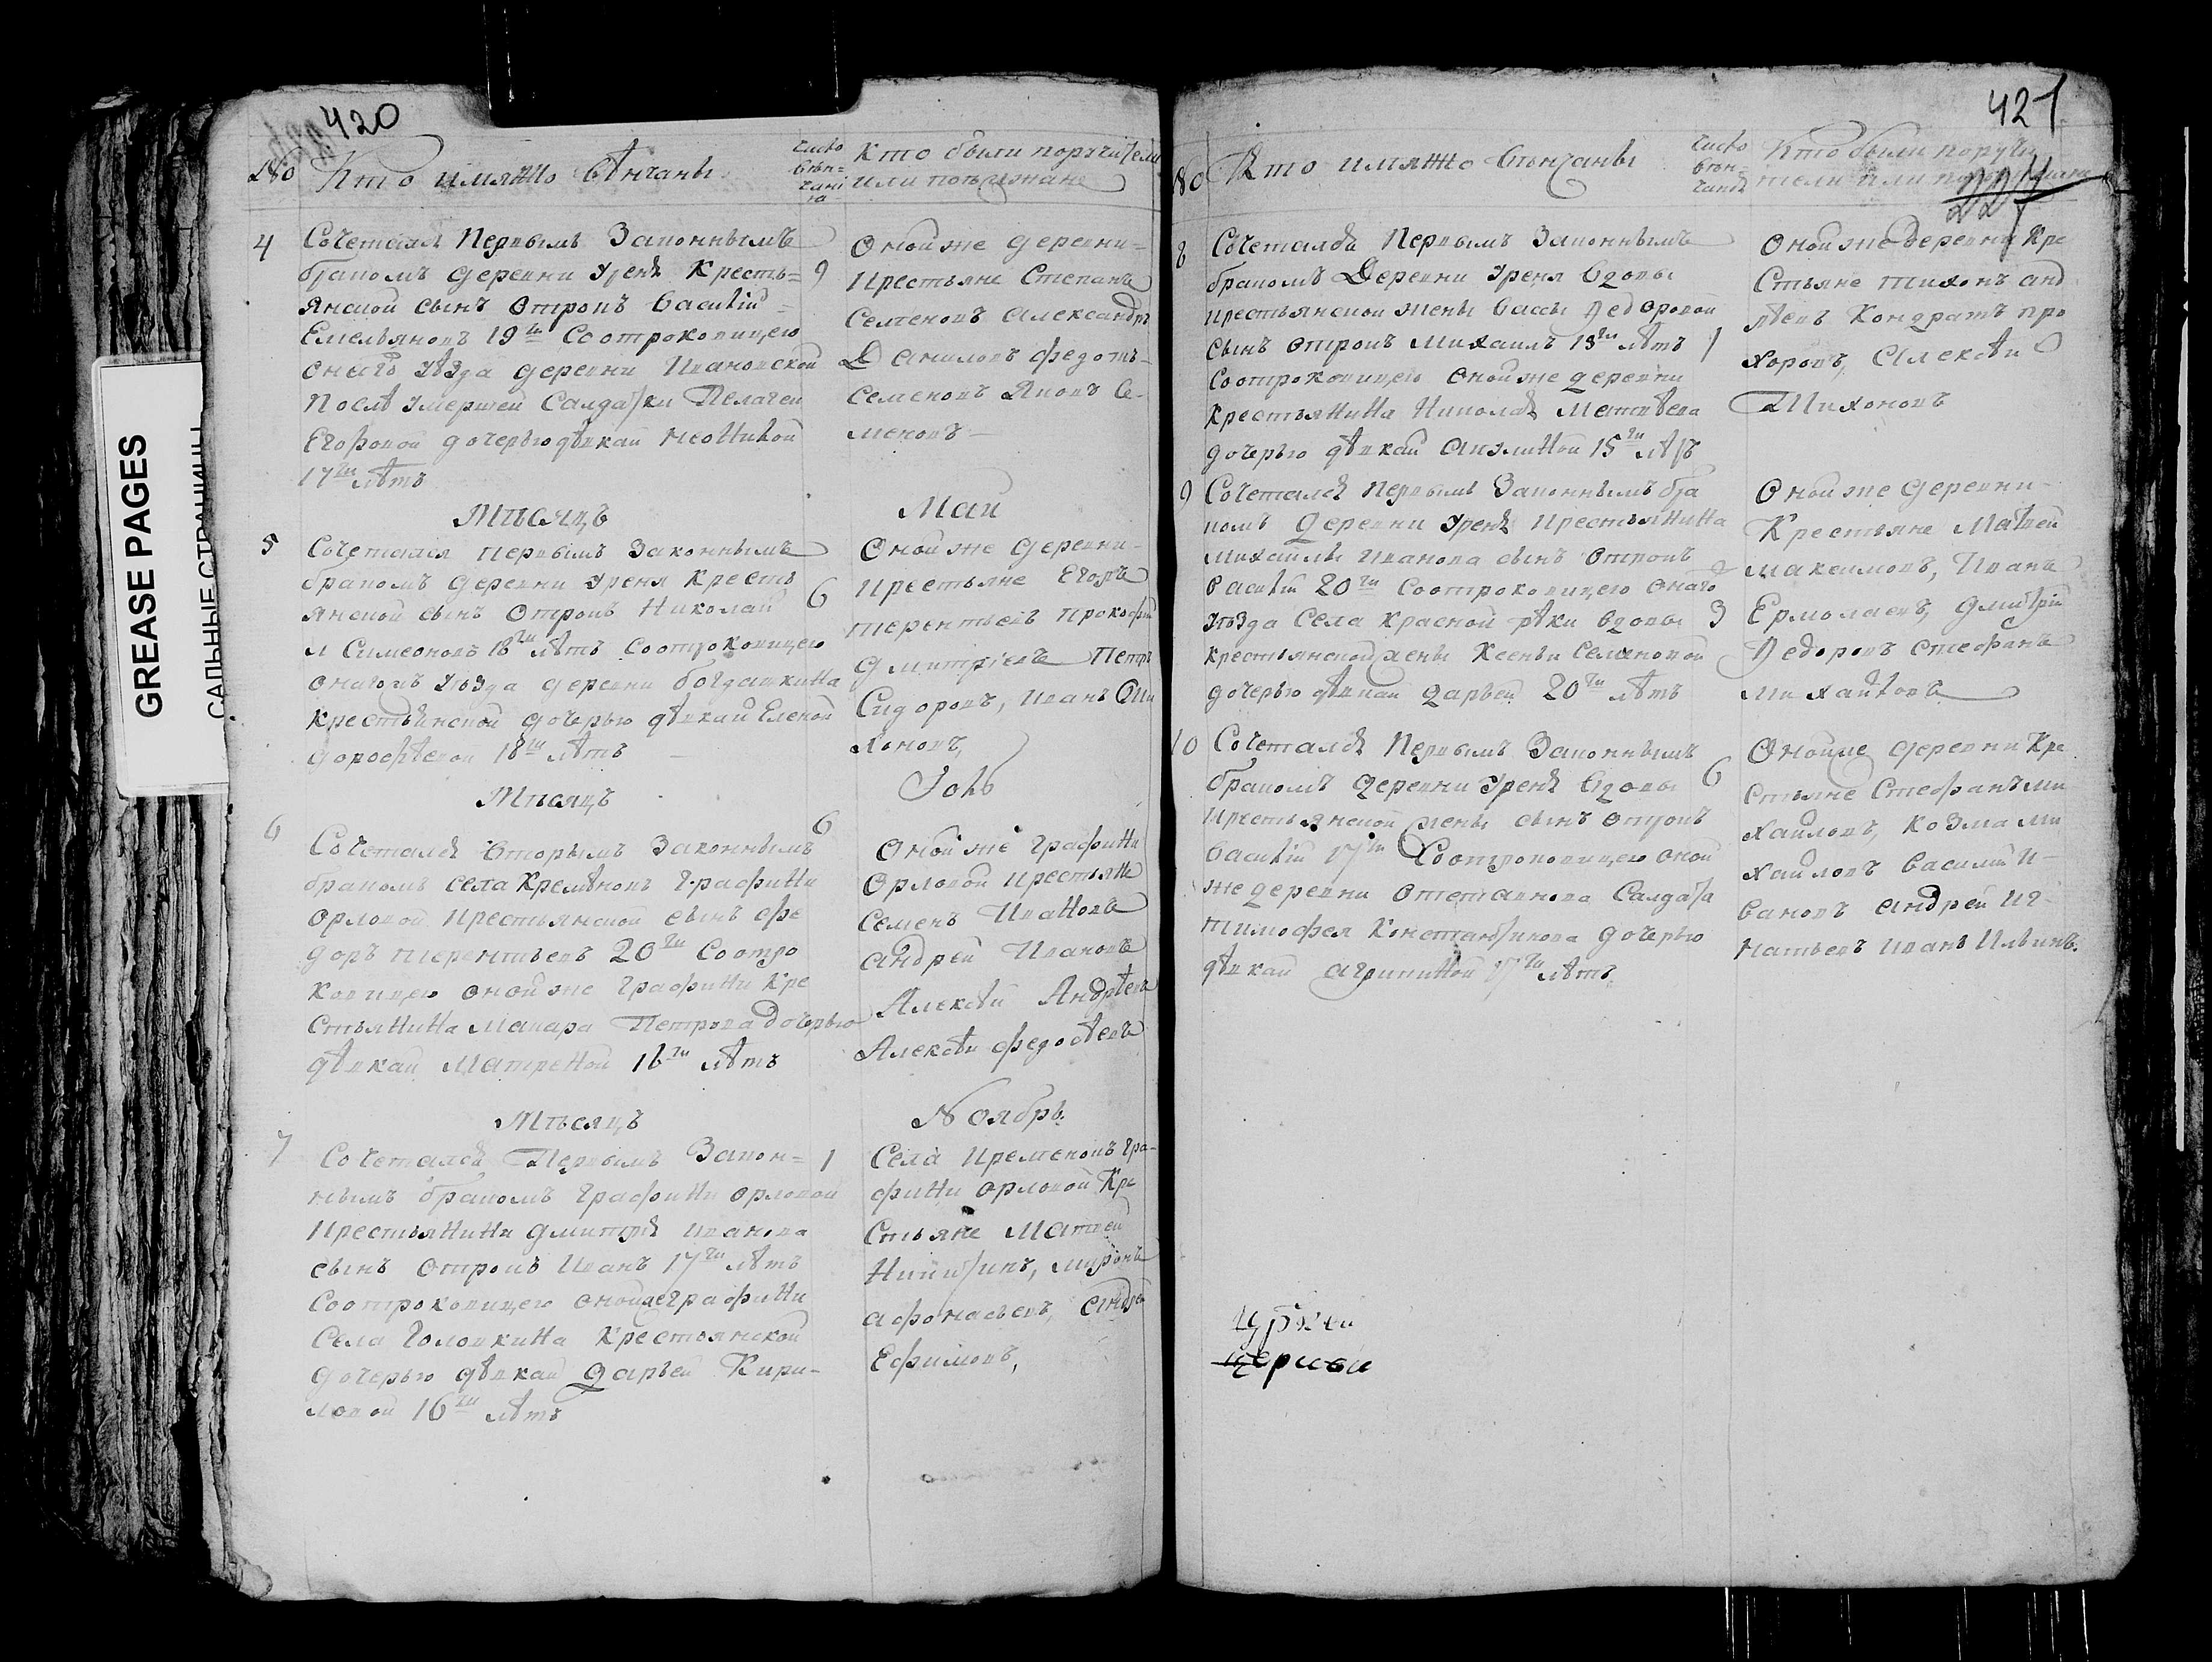 GREASE PAGES
САЛЬНЫЕ СТРАНИЦЫ
420
№ Кто имянно вѣнчаны
число вѣнчания
Кто были поручители
или поѣзжане
4 Сочетался первымъ законнымъ
бракомъ деревни Уреня кресть=
янской сынъ отрокъ василій
Емельяновъ 19ти со отроковицею
онаго уѣзда деревни Ивановской
послѣ умершей салдатки Пелагеи
Егоровой дочерью дѣвкай
17ти лѣтъ
9
Оной же деревни
крестьяне Степанъ
Семеновъ Александръ
Даниловъ федотъ
Семеновъ Яковъ Се-
меновъ
Мѣсяцъ Май
5 Сочетался первымъ законнымъ
бракомъ деревни Уреня кресть
янской сынъ отрокъ Николай
Симеоновъ 18ти лѣтъ со отроковицею
уѣзда деревни богдашкина
крестьянской дочерью дѣвкай Еленой
дорофѣевой 18ти лѣтъ
6
Оной же деревни
крестьяне Егоръ
терентьевъ прокофей
дмитріевъ Петръ
Сидоровъ, Иванъ
Мѣсяцъ
6 Сочетался вторымъ законнымъ
бракомъ села Кременокъ Графини
Орловой крестьянской сынъ фе
доръ терентьевъ 20ти со отро
ковицею оной же графини кре
стьянина Макара Петрова дочерью
дѣвкай Матреной 16ти лѣтъ
6
Оной же графини
Орловой крестьяне
Семенъ Ивановъ
андрей Ивановъ
Алексѣй Андрѣевъ
Алексѣй федосѣевъ
Мѣсяцъ Ноябрь
7 Сочетался Первымъ Закон=
нымъ бракомъ графини орловой
крестьянина дмитрія иванова
сынъ отрокъ Иванъ 17ти лѣтъ
Со отроковицею оной же графини
Села Головкина крестьянской
дочерью дѣвкай Дарьей Кири-
ловой 16ти лѣтъ
1
Села Кременокъ гра-
фини орловой Кре
стьяне Матвей
Никитинъ, миронъ
афонасьевъ, андрей
Ефимовъ,
421
№ Кто имянно вѣнчаны
число вѣнчания
Кто были поручи
тели или поѣзжане
227
8 Сочетался Первымъ Законнымъ
бракомъ Деревни Уреня вдовы
крестьянской жены вассы Федоровой
сынъ отрокъ Михаилъ 18ти лѣтъ
со отроковицею оной же деревни
крестьянина Николая Матвѣева
дочерью дѣвкай акулиной 15ти лѣтъ
1
Оной же деревни кре
стьяне тихонъ анд
рѣевъ Кондратъ про
хоровъ, Алексѣй
Тихоновъ
9 Сочетался Первымъ Законнымъ бра
комъ деревни Уреня крестьянина
михайлы иванова сынъ отрокъ
василій 20ти со отроковицею онаго
уѣзда Села красной рѣки вдовы
крестьянской жены Ксеньи Семеновой
дочерью дѣвкай дарьей 20ти лѣтъ
3
Оной же деревни
Крестьяне Матвей
максимовъ, Иванъ
Ермолаевъ, дмитрій
Федоровъ стефанъ
михайловъ
10 Сочетался Первымъ Законнымъ
бракомъ деревни Уреня вдовы
крестьянской жены сынъ отрокъ
василій 17ти Со отроковицею оной
же деревни отставнова Салдата
тимофея Константинова дочерью
дѣвкай агрипиной 17ти лѣтъ
6
Оной же деревни Кре
стьяне Стефанъ ми
хайловъ, козма ми
хайловъ василій и-
вановъ андрей иг-
натьевъ иванъ Ильинъ.
церкви